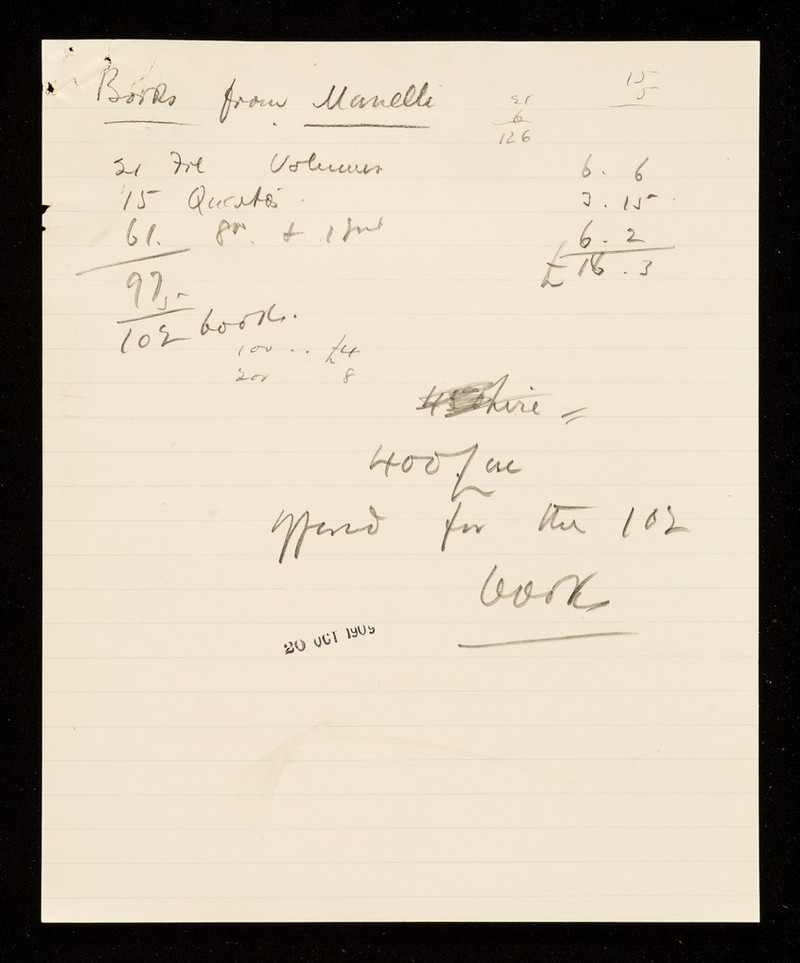 Books from Manelli
21
6
126
15
5
21 Fol Volumes 6. 6
15 Quartos 3. 15
61. 8vo + 6. 2
97 £16. 3
5
102 books.
100 .. £4
200 8
lire =
400
offered for the 102
books
20 OCT 1909